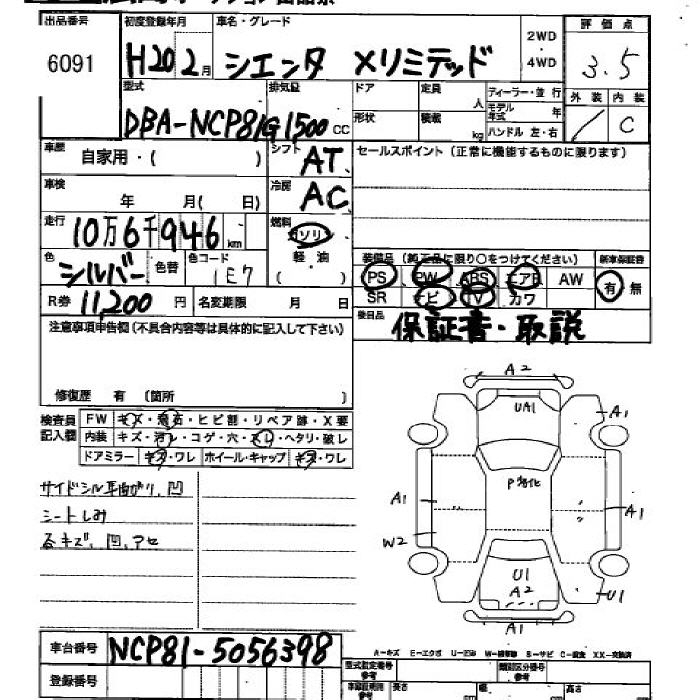 出品番号 初度登録年月 車名・グレード 2WD 評価点
6091 H20 2月 シエンタ Xリミテッド ・4WD 3.5
型式 排気量 ドア 定員 人 ディーラー・並行 外装 内装
モデル年式 年
DBA-NCP81G 1500 cc 形状 積載 kg ハンドル 左・右 C
車歴 自家用・( ) シフト AT セールスポイント(正常に機能するものに限ります)
車検 年 月( 日) 冷房 AC
走行 10万6千946km 燃料 ガソリン
軽・油
( )
色 シルバー 色替 色コード 1E7
装備品(純正品に限り○をつけてください) 新車保証書
PS PW ABS エアB AW 有・無
SR ナビ TV カワ
R券 11,200円 名変期限 月 日
後日品 保証書・取説
注意事項申告欄(不具合内容等は具体的に記入して下さい)
修復歴 有 〔箇所 〕
検査員記入欄 FW キズ・飛石・ヒビ割・リペア跡・X要
内装 キズ・汚れ・コゲ・穴・スレ・ヘタリ・破レ
ドアミラー キズ・ワレ ホイール・キャップ キズ・ワレ
サイドシル 凹
シートしみ
各キズ、凹、アセ
A2
UA1
A1
P劣化
A1
A1
W2
U1
A2
U1
A1
車台番号 NCP81-5056398
登録番号
A-キズ E-エクボ U-凹 W-補修跡 S-サビ C-腐食 XX-交換済
型式指定番号 参考 類別区分番号 参考
車庫証明用 参考 長さ 幅 高さ